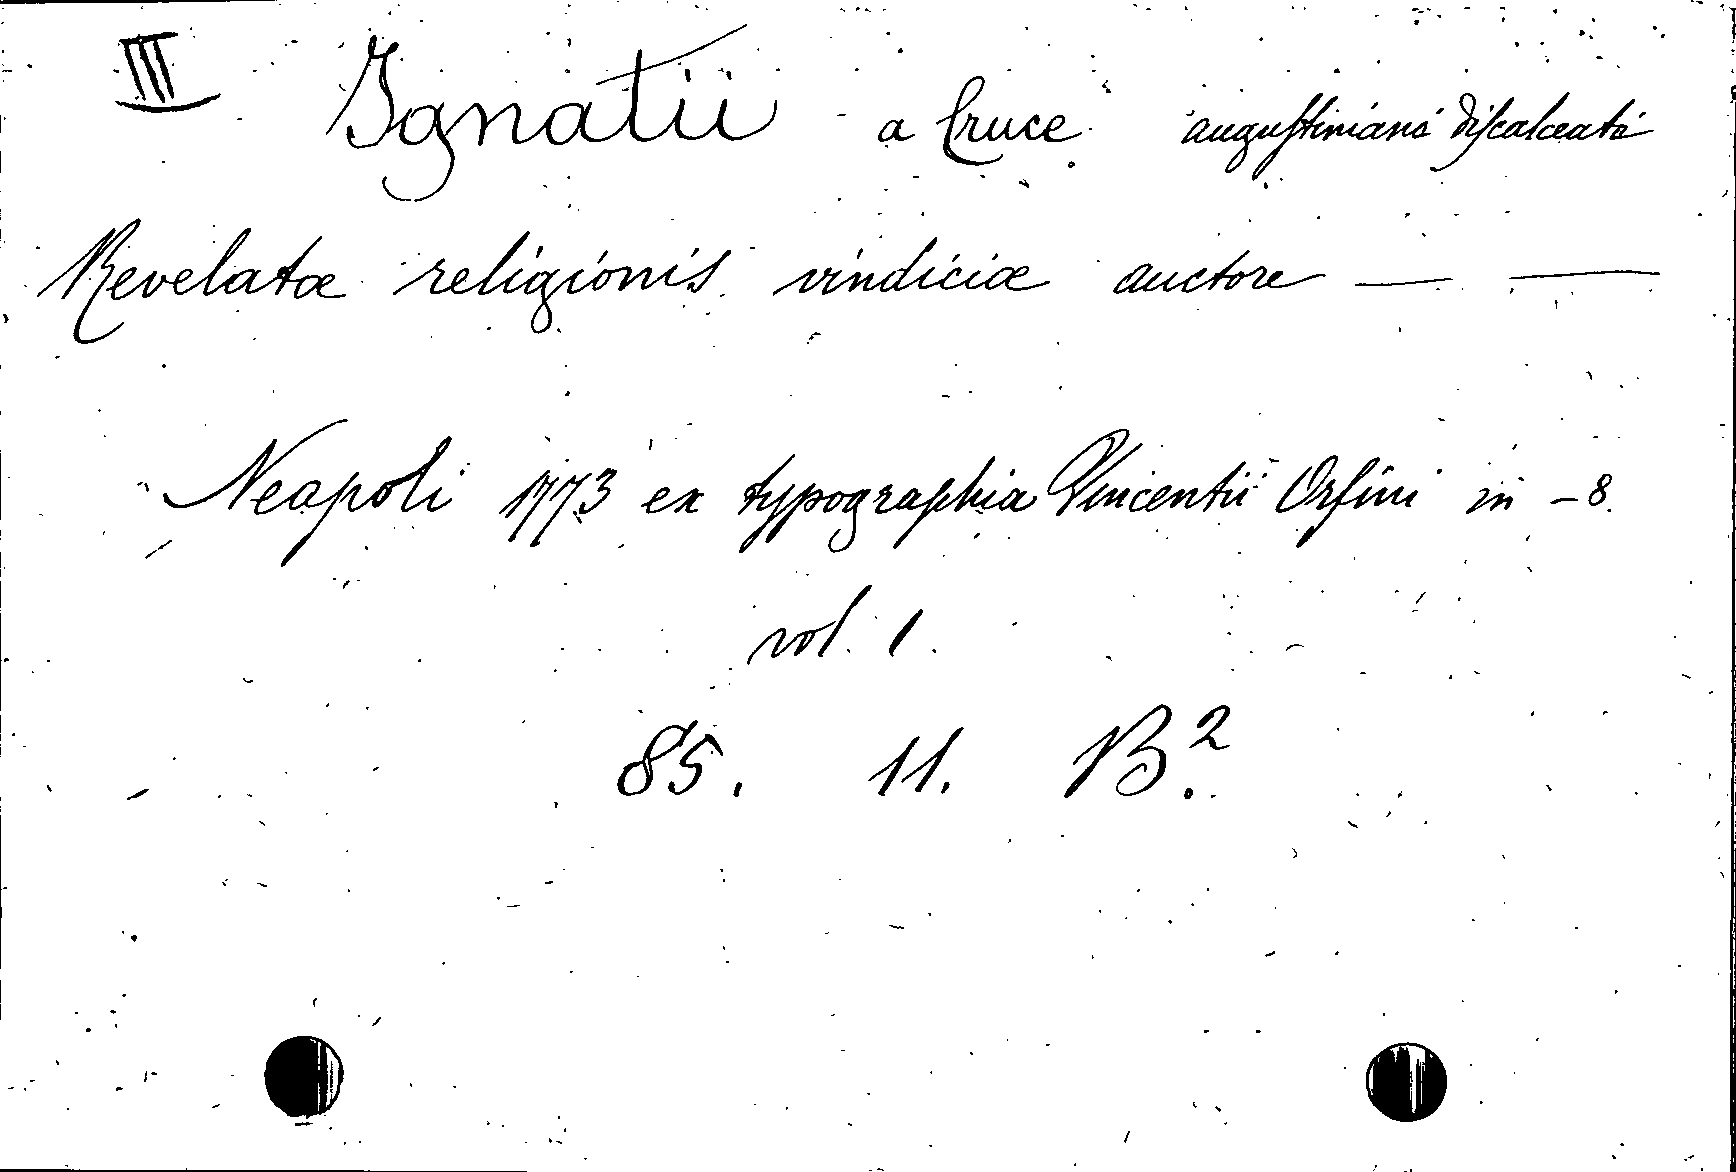 III Ignatii a Cruce augustiniani discalceati
Revelatæ religionis vindiciæ auctore — —
Neapoli 1773 ex typographia Vincentii Orsini in -8.
vol. 1.
85. 11. B².